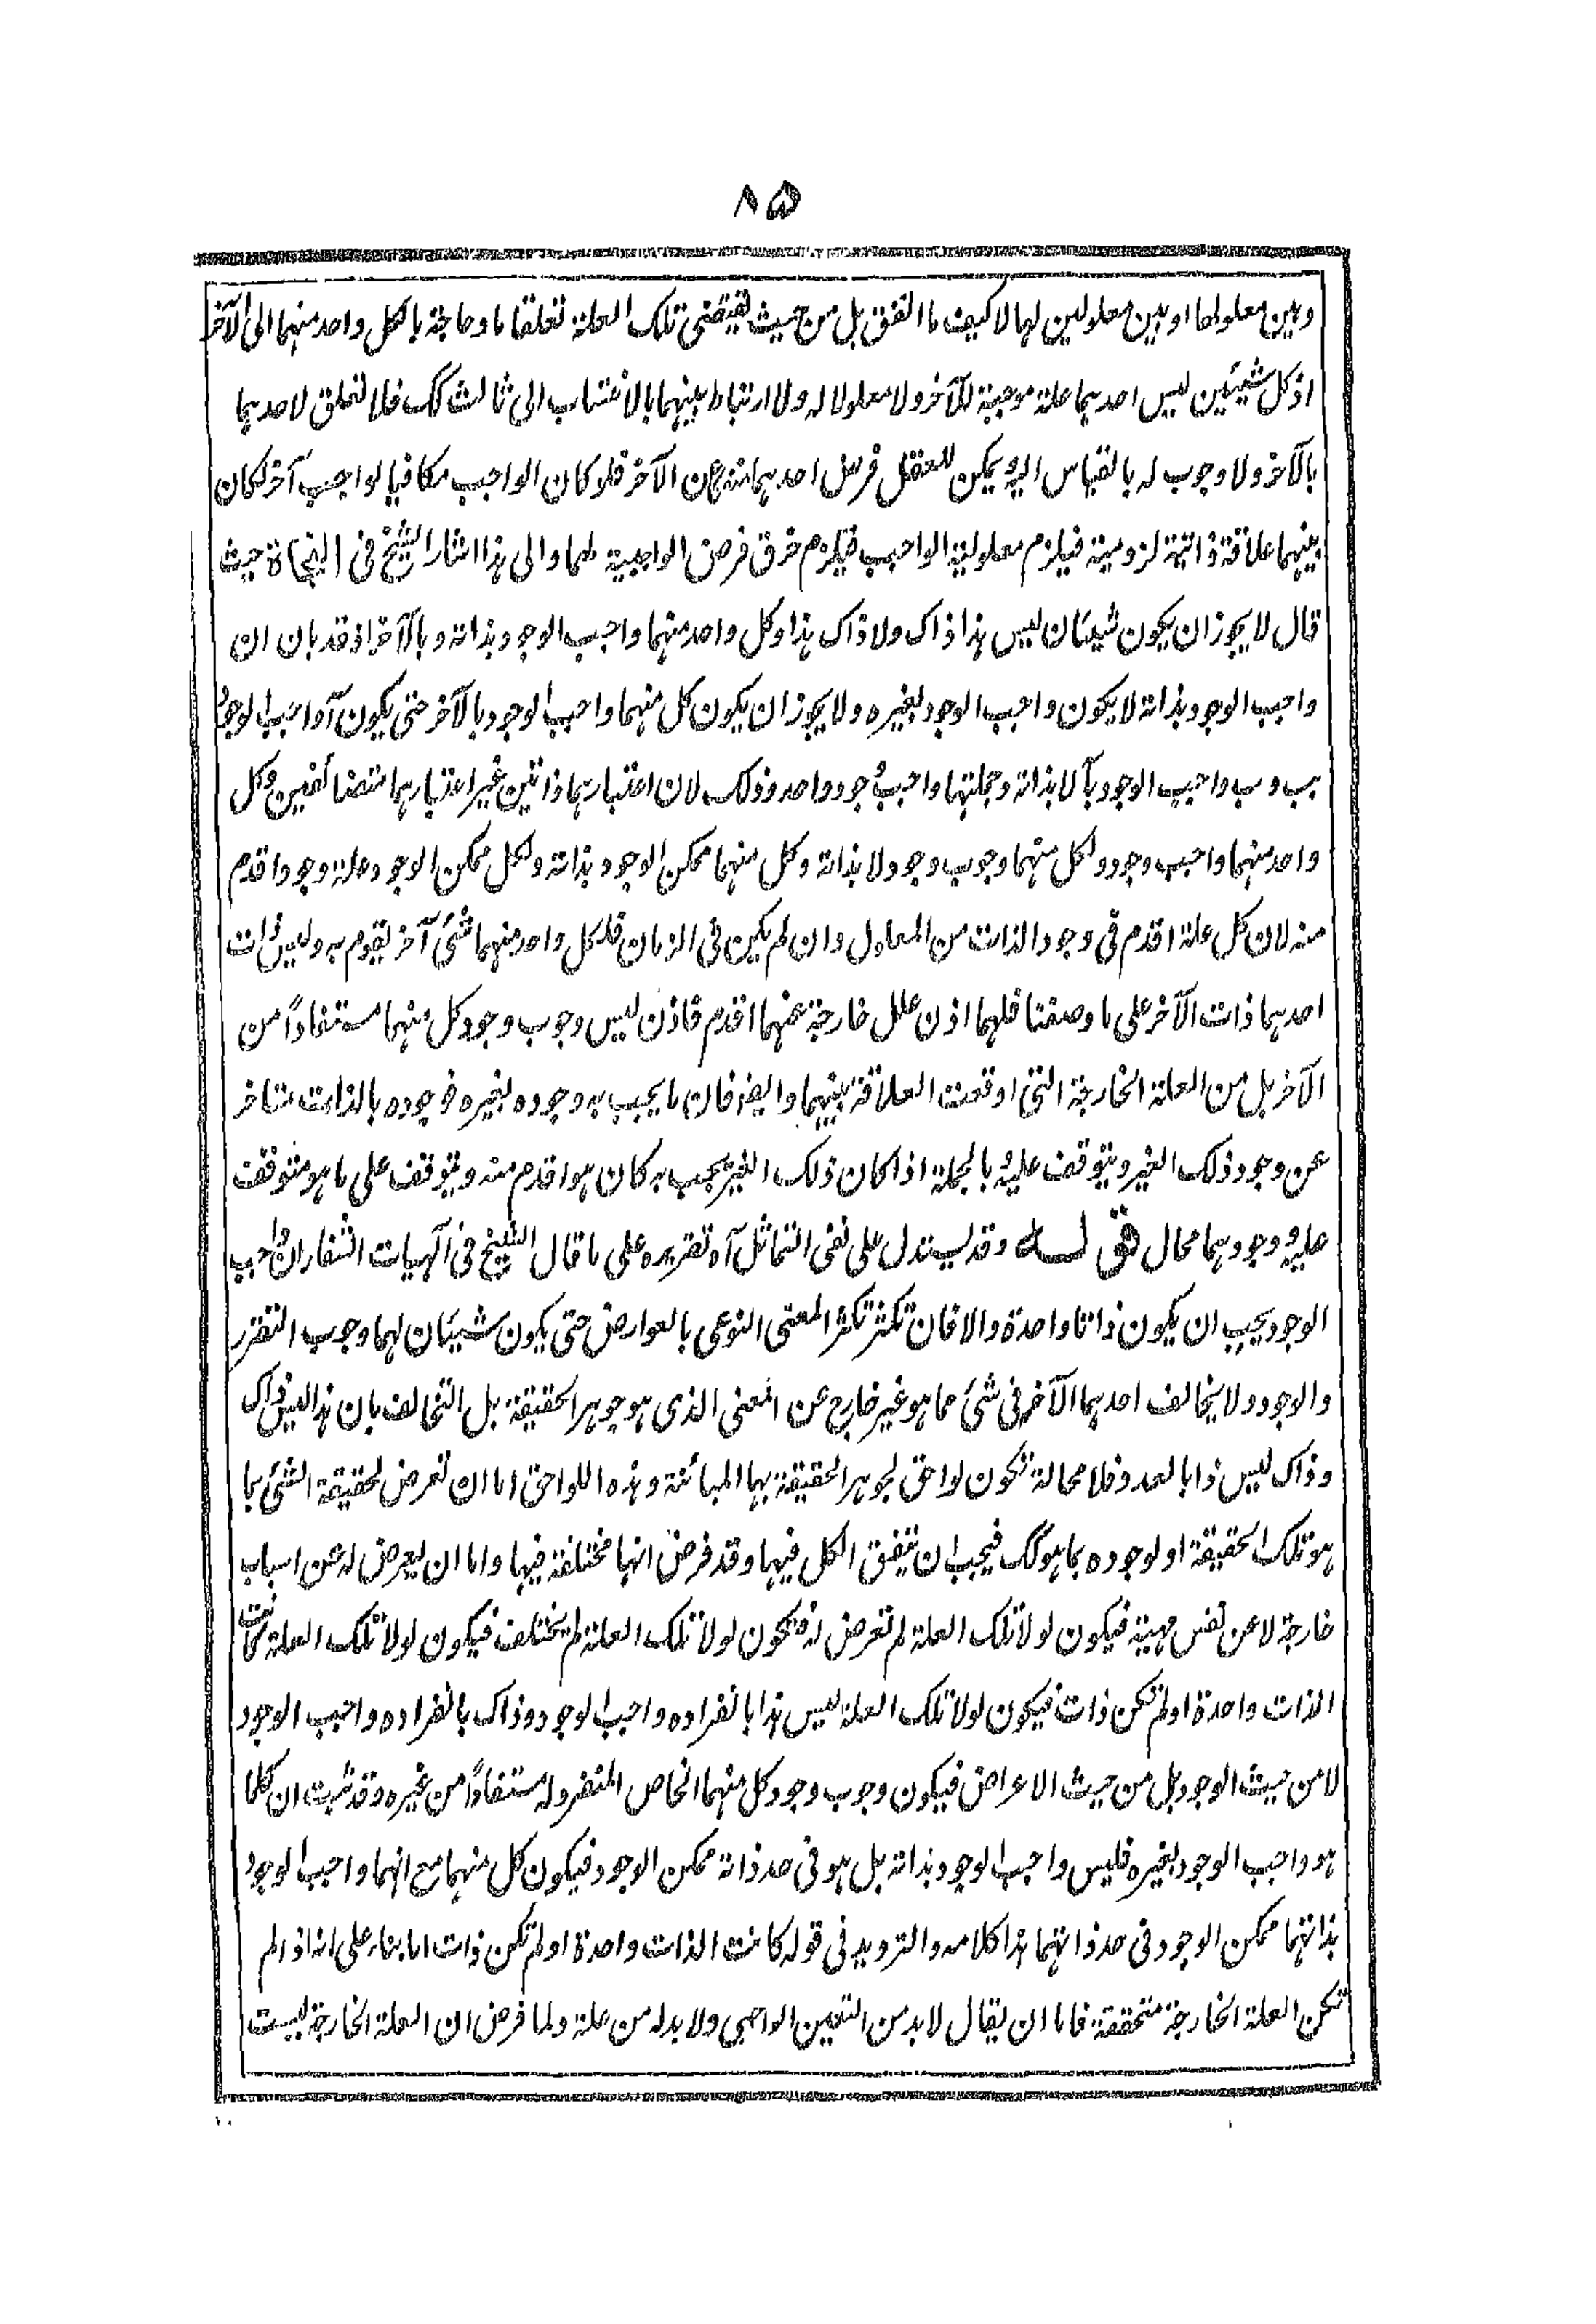 ٨٥
وبين معلولها او بين معلولين لها لا كيف ما اتفق بل من حيث تقتضى تلك العلة تعلقا ما وحاجة ما لكل واحد منهما الى الآخر
اذ كل شيئين ليس احدهما علة موجبة للآخر ولا معلولا له ولا ارتباط بينهما بالانتساب الى ثالث كك فلا تعلق لاحدهما
بالآخر ولا وجوب له بالقياس اليه ويمكن للعقل فرض احدهما منفكا عن الآخر فلو كان الواجب مكافيا لواجب آخر لكان
بينهما علاقة ذاتية لزومية فيلزم معلولية الواجب فيلزم خرق فرض الواجبية لهما والى هذا اشار الشيخ فى النجاة حيث
قال لا يجوز ان يكون شيئان ليس هذا ذاك ولا ذاك هذا وكل واحد منهما واجب الوجود بذاته وبالآخر اذ قد بان ان
واجب الوجود بذاته لا يكون واجب الوجود بغيره ولا يجوز ان يكون كل منهما واجب الوجود بالآخر حتى يكون آ واجب الوجود
بب وب واجب الوجود بآ لا بذاته وجملتهما واجب وجود واحد وذلك لان اعتبارهما ذاتين غير اعتبارهما متضائفين وكل
واحد منهما واجب وجود ولكل منهما وجوب وجود لا بذاته وكل منهما ممكن الوجود بذاته ولكل ممكن الوجود علة وجود اقدم
منه لان كل علة اقدم فى وجود الذات من المعلول وان لم يكن فى الزمان فلكل واحد منهما شئ آخر يقوم به وليس ذات
احدهما ذات الآخر على ما وصفنا فلهما اذن علل خارجة عنهما اقدم فاذن ليس وجوب وجود كل منهما مستفادًا من
الآخر بل من العلة الخارجة التى اوقعت العلاقة بينهما وايضا فان ما يجب به وجوده بغيره فوجوده بالذات متاخر
عن وجود ذلك الغير ويتوقف عليه وبالجملة اذا كان ذلك الغير يجب به كان هو اقدم منه ويتوقف على ما هو متوقف
عليه ووجودهما محال قوله وقد يستدل على نفى التماثل آه تقريره على ما قال الشيخ فى آلهيات الشفا ان واجب
الوجود يجب ان يكون ذاتا واحدة والا فان تكثر تكثر المعنى النوعى بالعوارض حتى يكون شيئان لهما وجوب التقرر
والوجود ولا يخالف احدهما الآخر فى شئ مما هو غير خارج عن المعنى الذى هو جوهر الحقيقة بل التخالف بان هذا ليس ذاك
وذاك ليس ذا بالعدد فلا محالة تكون لواحق لجوهر الحقيقة بها المبائنة وهذه اللواحق اما ان تعرض لحقيقة الشئ بما
هو تلك الحقيقة او لوجوده بما هو كك فيجب ان يتفق الكل فيها وقد فرض انها مختلفة فيها واما ان يعرض له عن اسباب
خارجة لا عن نفس مهية فيكون لولا تلك العلة لم تعرض له فيكون لولا تلك العلة لم يختلف فيكون لولا تلك العلة كانت
الذات واحدة او لم تكن ذات فيكون لولا تلك العلة ليس هذا بانفراده واجب الوجود وذاك بانفراده واجب الوجود
لا من حيث الوجود بل من حيث الاعراض فيكون وجوب وجود كل منهما الخاص المنفرد له مستفادًا من غيره وقد ثبت ان كلما
هو واجب الوجود بغيره فليس واجب الوجود بذاته بل هو فى حد ذاته ممكن الوجود فيكون كل منهما مع انهما واجب الوجود
بذاتهما ممكن الوجود فى حد ذاتهما هذا كلامه والترديد فى قوله كانت الذات واحدة او لم تكن ذات اما بناء على انه اذا لم
تكن العلة الخارجة متحققة فاما ان يقال لا بد من التعين الواجبى ولا بد له من علة ولما فرض ان العلة الخارجة ليست